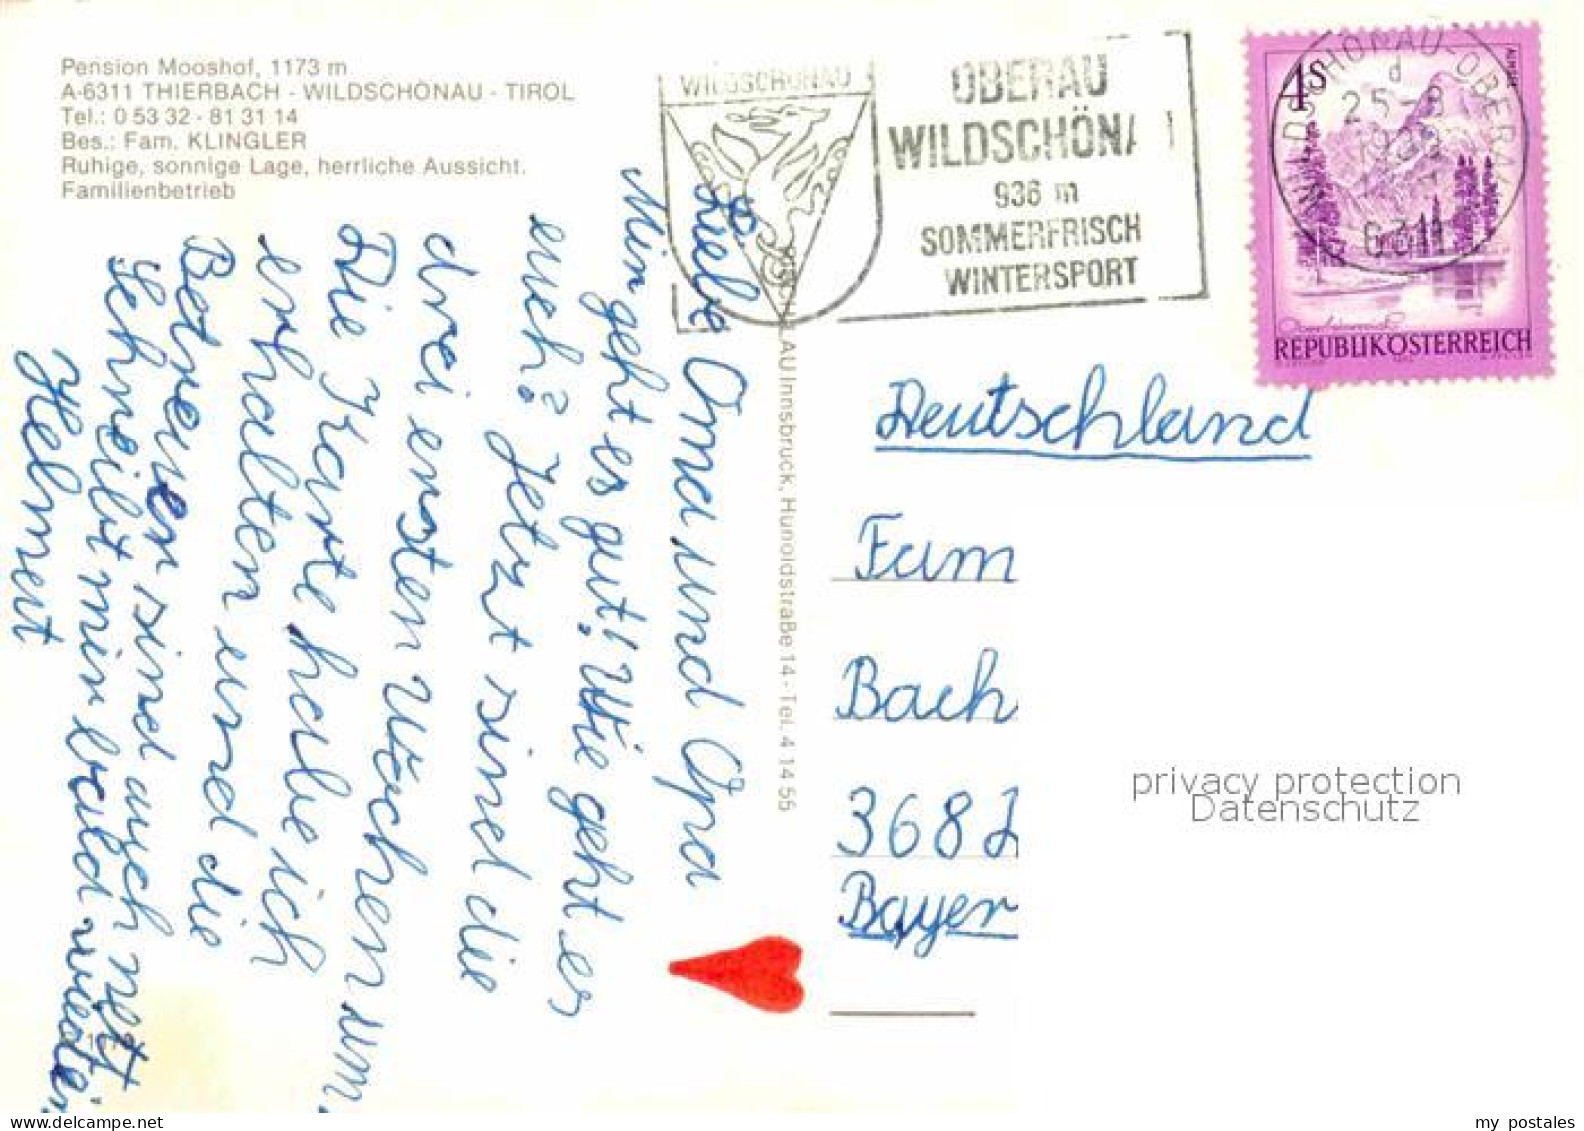 Pension Mooshof, 1173 m
A-6311 THIERBACH - WILDSCHÖNAU - TIROL
Tel.: 0 53 32 - 81 31 14
Bes.: Fam. KLINGLER
Ruhige, sonnige Lage, herrliche Aussicht.
Familienbetrieb
WILDSCHÖNAU
OBERAU
WILDSCHÖNA
936 m
SOMMERFRISCH
WINTERSPORT
4S
ALMSEE
WILDSCHÖNAU-OBERAU
d
25-8
6311
REPUBLIK ÖSTERREICH
Liebe Oma und Opa
Mir geht es gut! Wie geht es
euch? Jetzt sind die
drei ersten Wochen um.
Die Karte habe ich
erhalten und die
Betreuer sind auch nett
Schreibt mir bald wieder.
Helmut
AU Innsbruck, Hunoldstraße 14 - Tel. 4 14 55
Deutschland
Fam
Bach
368
Bayer
privacy protection
Datenschutz
my postales